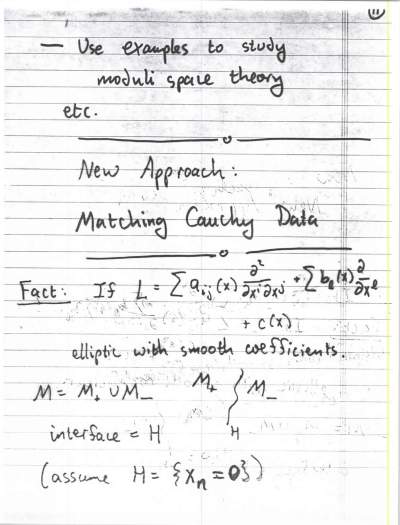 11
— Use examples to study
moduli space theory
etc.
New Approach:
Matching Cauchy Data
Fact: If L = ∑ a_ij(x) ∂²/∂xⁱ∂xʲ + ∑ b_ℓ(x) ∂/∂x^ℓ
+ c(x)
elliptic with smooth coefficients.
M = M₊ ∪ M₋ M₊ M₋
interface = H H
(assume H = {x_n = 0})